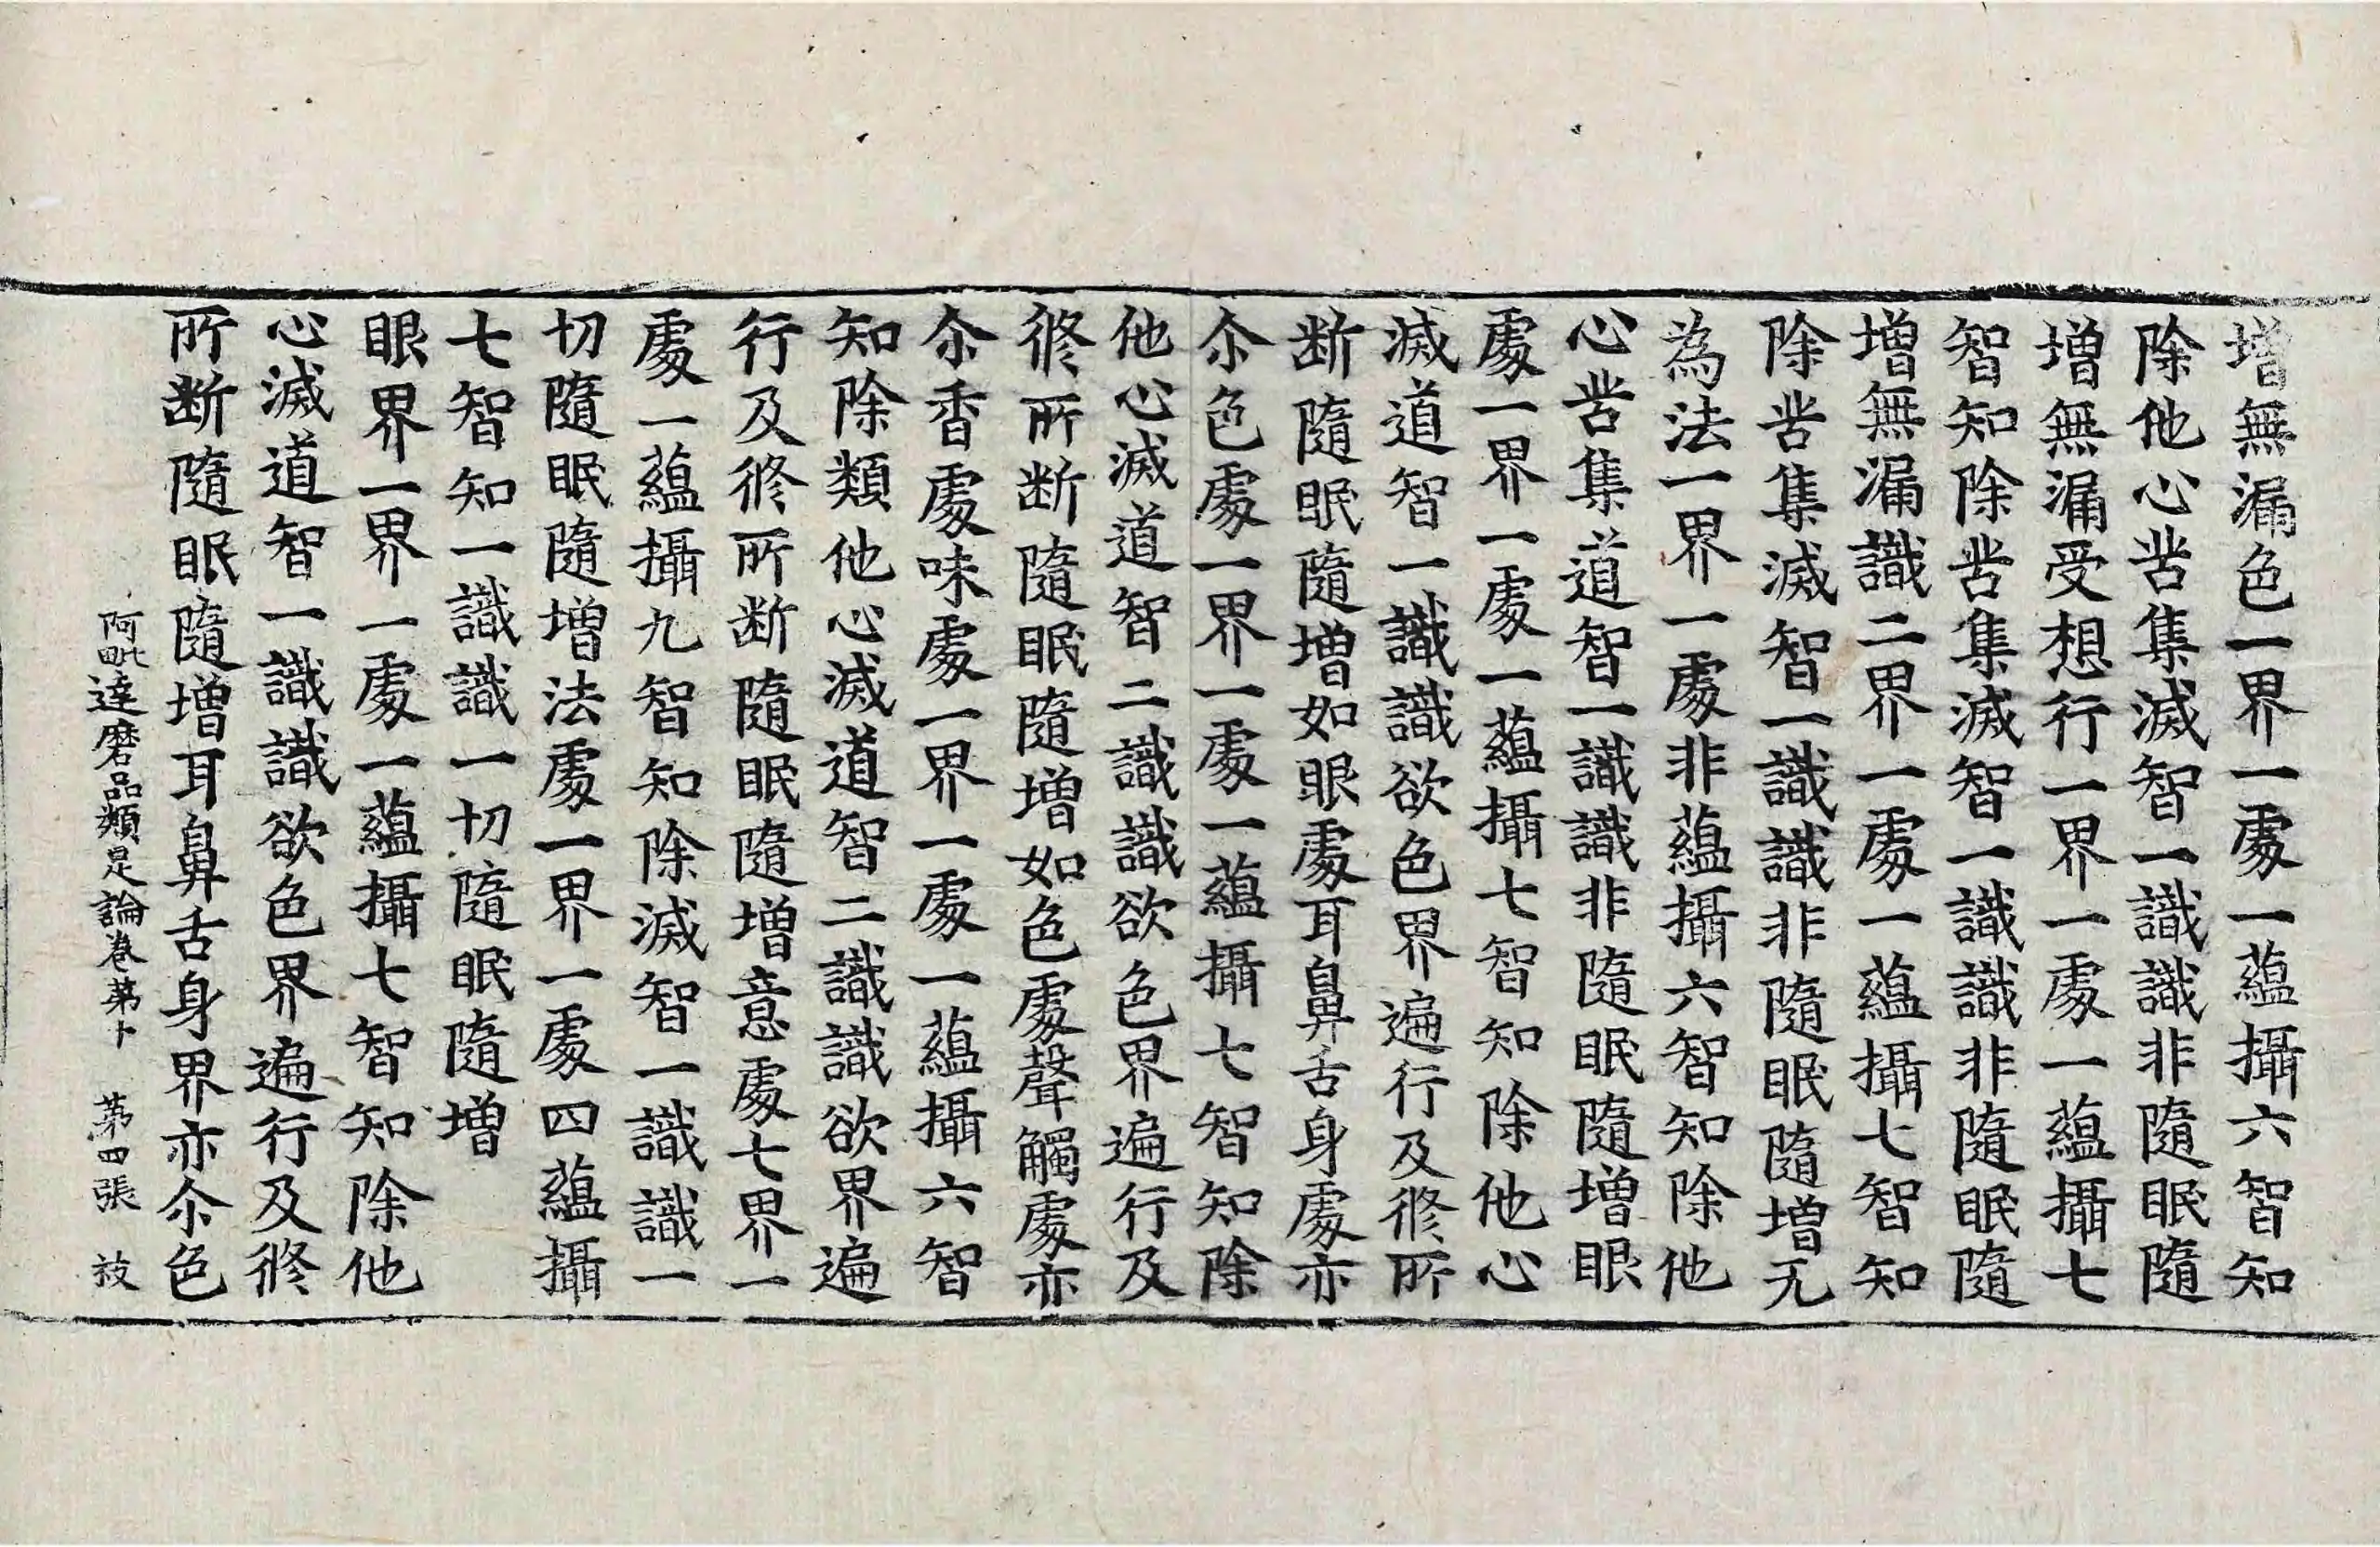 增無漏色一界一處一蘊攝六智知
除他心苦集滅智一識識非隨眠隨
增無漏受想行一界一處一蘊攝七
智知除苦集滅智一識識非隨眠隨
增無漏識二界一處一蘊攝七智知
除苦集滅智一識識非隨眠隨增无
為法一界一處非蘊攝六智知除他
心苦集道智一識識非隨眠隨增眼
處一界一處一蘊攝七智知除他心
滅道智一識識欲色界遍行及修所
断隨眠隨增如眼處耳鼻舌身處亦
尒色處一界一處一蘊攝七智知除
他心滅道智二識識欲色界遍行及
修所断隨眠隨增如色處聲觸處亦
尒香處味處一界一處一蘊攝六智
知除類他心滅道智二識識欲界遍
行及修所断隨眠隨增意處七界一
處一蘊攝九智知除滅智一識識一
切隨眠隨增法處一界一處四蘊攝
七智知一識識一切隨眠隨增
眼界一界一處一蘊攝七智知除他
心滅道智一識識欲色界遍行及修
所断隨眠隨增耳鼻舌身界亦尒色
阿毗達磨品類足論卷第十　第四張　技